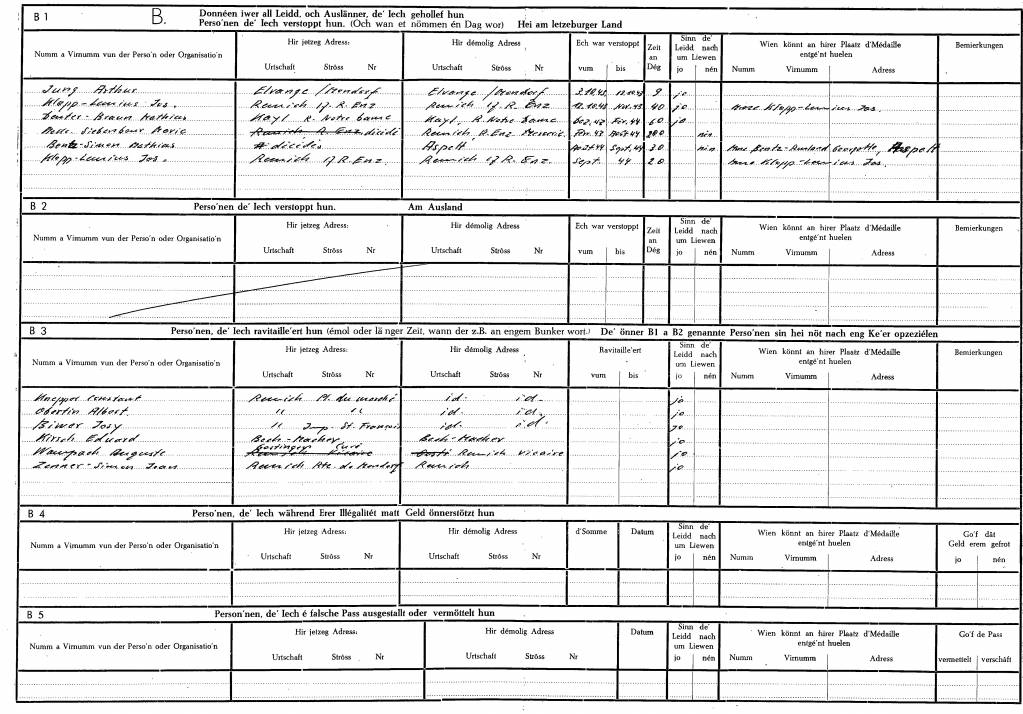 B 1 B. Donnéen iwer all Leidd, och Auslänner, de' Iech gehollef hun
Perso'nen de' Iech verstoppt hun. (Och wan et nömmen én Dag wor) Hei am letzeburger Land
Numm a Virnumm vun der Perso'n oder Organisatio'n
Hir jetzeg Adress:
Urtschaft Ströss Nr
Hir démolig Adress
Urtschaft Ströss Nr
Ech war verstoppt
vum bis
Zeit an Dég
Sinn de' Leidd nach um Liewen
jo nén
Wien könnt an hirer Plaatz d'Médaille entgé'nt huelen
Numm Virnumm Adress
Bemierkungen
Jung Arthur Elvange /Mondorf Elvange /Mondorf 9 jo
Klopp-Lunius Jos. Remich 17. R. Enz Remich 17. R. Enz 40 jo Mme Klopp-Lunius Jos.
Braun Mathias Kayl R. Notre Dame Kayl, R. Notre Dame 60 jo
décidé Remich, R. Enz nén
Bentz-Simon Mathias décidés Aspelt 30 nén Aspelt
Klopp-Lunius Jos. Remich 17 R. Enz. Remich 17 R. Enz. Sept. 44 20 Mme Klopp-Lunius Jos.
B 2 Perso'nen de' Iech verstoppt hun. Am Ausland
Numm a Virnumm vun der Perso'n oder Organisatio'n
Hir jetzeg Adress:
Urtschaft Ströss Nr
Hir démolig Adress
Urtschaft Ströss Nr
Ech war verstoppt
vum bis
Zeit an Dég
Sinn de' Leidd nach um Liewen
jo nén
Wien könnt an hirer Plaatz d'Médaille entgé'nt huelen
Numm Virnumm Adress
B 3 Perso'nen, de' Iech ravitaille'ert hun (émol oder länger Zeit, wann der z.B. an engem Bunker wort.) De' önner B1 a B2 genannte Perso'nen sin hei nöt nach eng Ke'er opzeziélen
Numm a Virnumm vun der Perso'n oder Organisatio'n
Hir jetzeg Adress:
Urtschaft Ströss Nr
Hir démolig Adress
Urtschaft Ströss Nr
Ravitaille'ert
vum bis
Sinn de' Leidd nach um Liewen
jo nén
Wien könnt an hirer Plaatz d'Médaille entgé'nt huelen
Numm Virnumm Adress
Bemierkungen
Constant Remich Pl. du marché id. id. jo
Obertin Albert " " id. id. jo
Biwer Josy " Imp. St. François id. id. jo
Kirsch Eduard Bech-Macher Bech-Macher jo
Wampach Auguste Curé Remich Vicaire jo
Zenner-Simon Jean Remich Rte. de Mondorf Remich jo
B 4 Perso'nen, de' Iech während Erer Illégalitét matt Geld önnerstötzt hun
Numm a Virnumm vun der Perso'n oder Organisatio'n
Hir jetzeg Adress:
Urtschaft Ströss Nr
Hir démolig Adress
Urtschaft Ströss Nr
d'Somme
Datum
Sinn de' Leidd nach um Liewen
jo nén
Wien könnt an hirer Plaatz d'Médaille entgé'nt huelen
Numm Virnumm Adress
Go'f dât Geld erem gefrot
jo nén
B 5 Person'nen, de' Iech é falsche Pass ausgestallt oder vermöttelt hun
Numm a Virnumm vun der Perso'n oder Organisatio'n
Hir jetzeg Adress:
Urtschaft Ströss Nr
Hir démolig Adress
Urtschaft Ströss Nr
Datum
Sinn de' Leidd nach um Liewen
jo nén
Wien könnt an hirer Plaatz d'Médaille entgé'nt huelen
Numm Virnumm Adress
Go'f de Pass
vermettelt verschâft